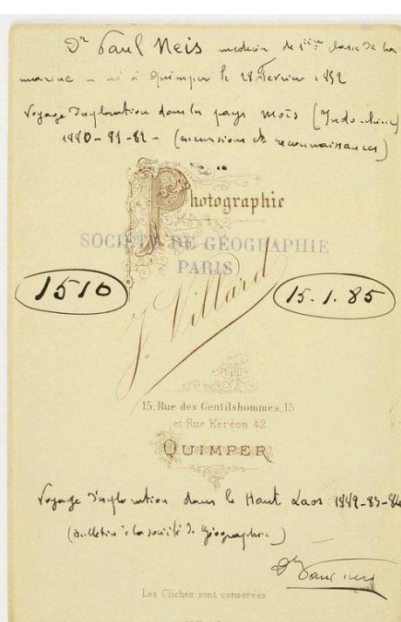 Dr Paul Neis medecin de 1ère classe de la
marine - né à Quimper le 28 Fevrier 1852
Voyage d'exploration dans les pays moïs (Indo-chine)
1880-81-82 - (excursions et reconnaissances)
Photographie
SOCIÉTÉ DE GÉOGRAPHIE
PARIS
1510
15.1.85
J. Villard
15, Rue des Gentilshommes, 15
et Rue Kéréon 42
QUIMPER
Voyage d'exploration dans le Haut Laos 1882-83-84
(Bulletin de la société de géographie)
Dr Paul Neis
Les Clichés sont conservés